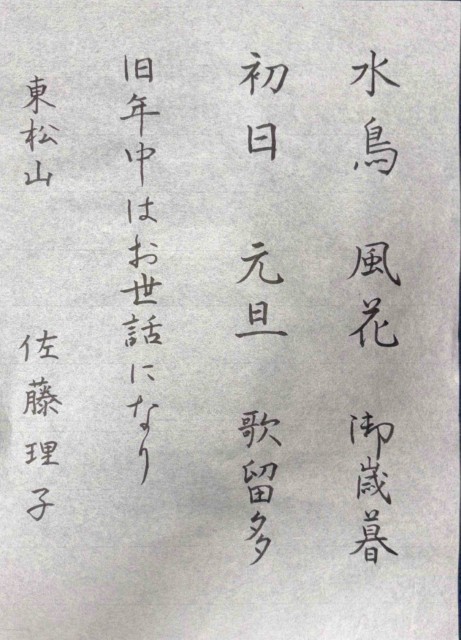 水鳥 風花 御歳暮
初日 元旦 歌留多
旧年中はお世話になり
東松山 佐藤理子